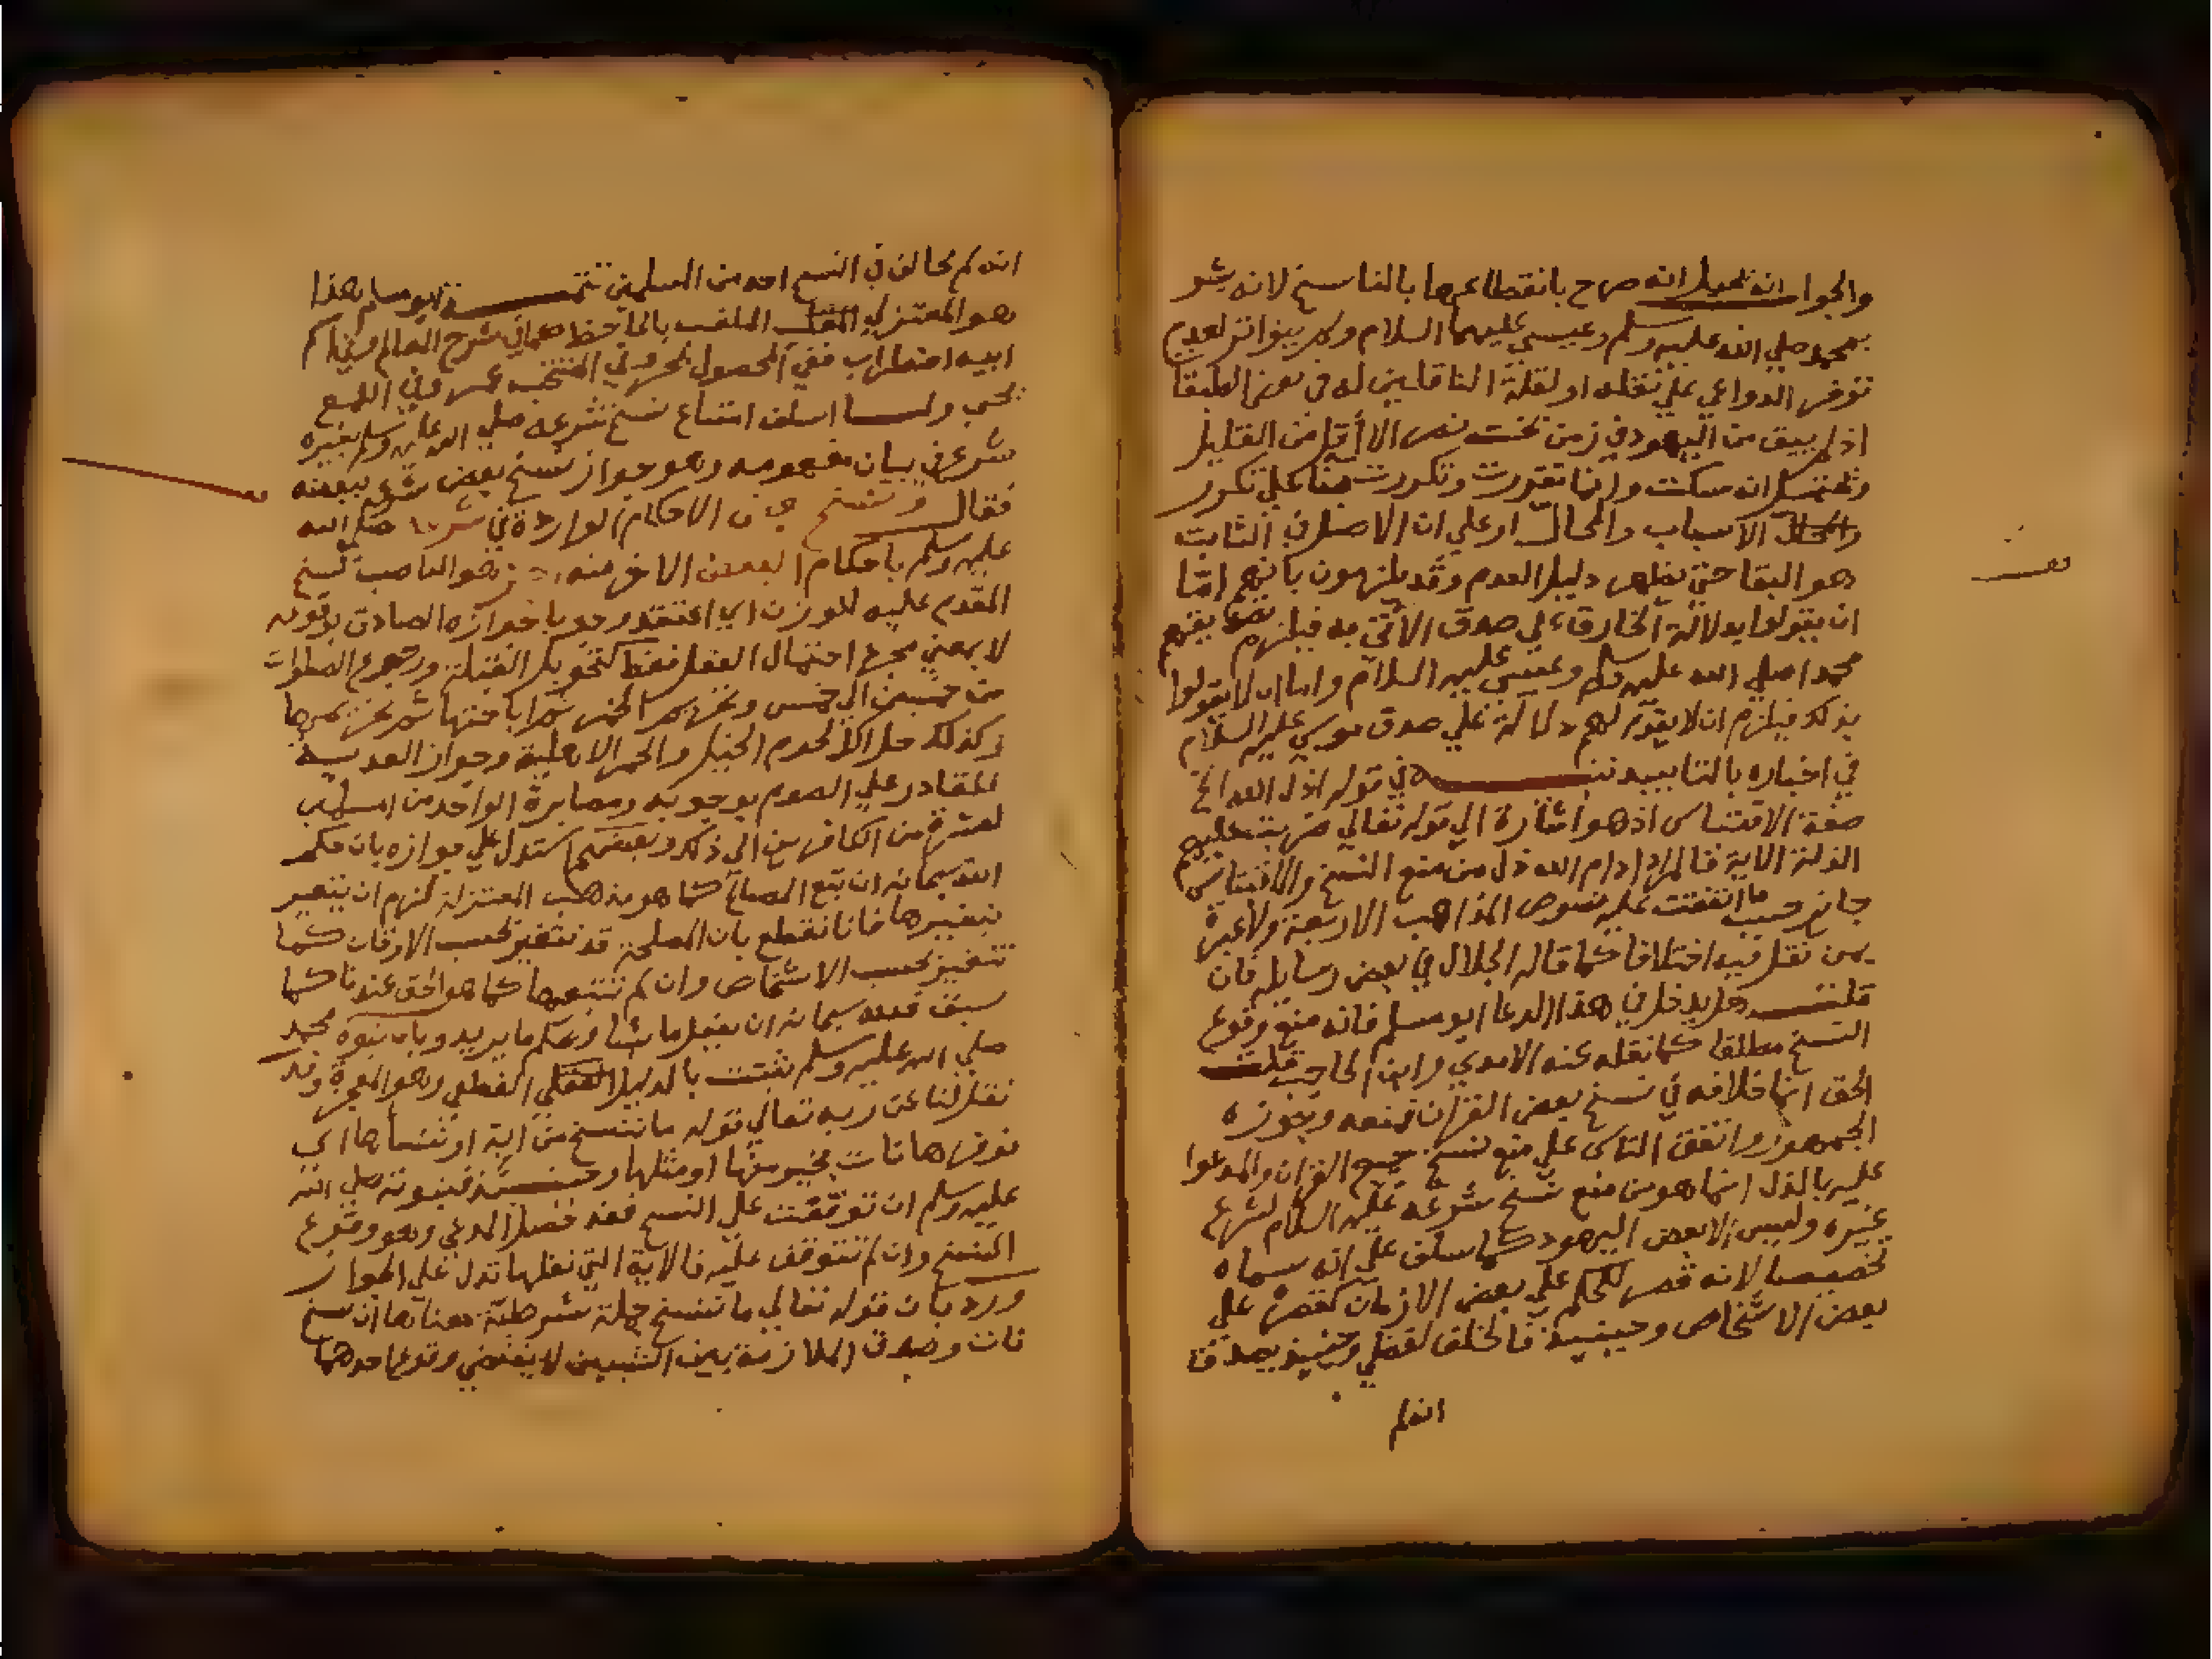 والجواب انه نحيل انه صرح بانقطاعها بالناسخ لانه بشر
بمحمد صلي الله عليه وسلم وعيسي عليهما السلام ولم يتواتر لعدم
توفر الدواعي علي نقله او لقلة الناقلين له في بعض الطبقات
اذ لم يبق من اليهود في زمن بخت نصر الا اقل من القليل
انه سكت وانما تقررت وتكررت بناء علي تكرر
الاسباب والمحال او علي ان الاصل في الثابت
هو البقا حتي يظهر دليل العدم وقد يلزمون بانهم اما
ان يقولوا بدلالة الخارق علي صدق الاتي به فيلزمهم
محمدا صلي الله عليه وسلم وعيسي عليه السلام واما ان لا يقولوا
بذلك فيلزم ان لا يقوم لهم دلالة علي صدق موسي عليه السلام
في اخباره بالتابيد تنبيه في قوله اذل الله الخ
صفة الاقتباس اذ هو اشارة الي قوله تعالي ضربت عليهم
الذلة الاية فالمراد ادام الله ذل من منع النسخ والاقتباس
جايز حسب ما اتفقت عليه نصوص المذاهب الاربعة ولا عبرة
بمن نقل فيه اختلافا كما قاله الجلال في بعض رسايله فان
قلت هل يدخل في هذا الدعا ابو مسلم فانه منع وقوع
النسخ مطلقا كما نقله عنه الامدي وابن الحاجب قلت
الحق انما خلافه في نسخ بعض القران فمنعه وجوزه
الجمهور واتفق الناس علي منع نسخ جميع القران والمدعوا
عليه بالذل انما هو من منع نسخ شرعه عليه السلام لشرع
غيره وليس الا بعض اليهود كما سلف علي انه سماه
تخصيصا لانه قصر للحكم علي بعض الازمان كقصره علي
بعض الاشخاص وحينيذ فالخلف لفظي وحينيذ يصدق
انه لم
انه لم يخالف في النسخ احد من المسلمين تتمة ابو مسلم هذا
هو المعتزلي الملقب بالجاحظ كما في شرح المعالم وفي اسم
ابيه اضطراب ففي المحصول بحر وفي المنتخب عمر وفي اللمع
يحيي ولما اسلف امتناع نسخ شرعه صلي الله عليه وسلم بغيره
شرع في بيان مفهومه وهو جواز نسخ بعض شرعه ببعضه
فقال ونسخ الاحكام الواردة في شرعه صلي الله
عليه وسلم باحكام البعض الاخر منه هو الناصب لنسخ
المقدم عليه للوزن اي اعتقد وجوبا جوازه الصادق بوقوعه
لا بمعني مجرد احتمال العقل فقط كتحويل القبلة ورجوع الصلوات
من خمسين الي خمس وتحريم الخمر ثم اباحتها ثم تحريمها
وكذلك حل اكل لحوم الخيل والحمر الاهلية وجواز الفدية
للقادر علي الصوم بوجوبه ومصابرة الواحد من المسلمين
لعشرة من الكافرين الي ذلك وبعضهم استدل علي جوازه بان حكم
الله سبحانه ان تبع المصالح كما هو مذهب المعتزلة لزم ان يتغير
بتغيرها فانا نقطع بان المصلحة قد تتغير بحسب الاوقات كما
تتغير بحسب الاشخاص وان لم تتبعها كما هو الحق عندنا كما
سبق فلله سبحانه ان يفعل ما يشا ويحكم ما يريد وبان نبوة محمد
صلي الله عليه وسلم ثبتت بالدليل القطعي وهو المعجزة وقد
نقل لنا عن ربه تعالي قوله ما ننسخ من اية او ننسأها اي
نوخرها نات بخير منها او مثلها وحينيذ فنبوته صلي الله
عليه وسلم ان توقفت علي النسخ فقد حصل المدعي وهو وقوع
النسخ وان لم تتوقف عليه فالاية التي نقلها تدل علي الجواز
ورد بان قوله تعالي ما ننسخ جملة شرطية معناها ان ننسخ
نات وصدق الملازمة بين الشيين لا يقتضي وقوع احدهما